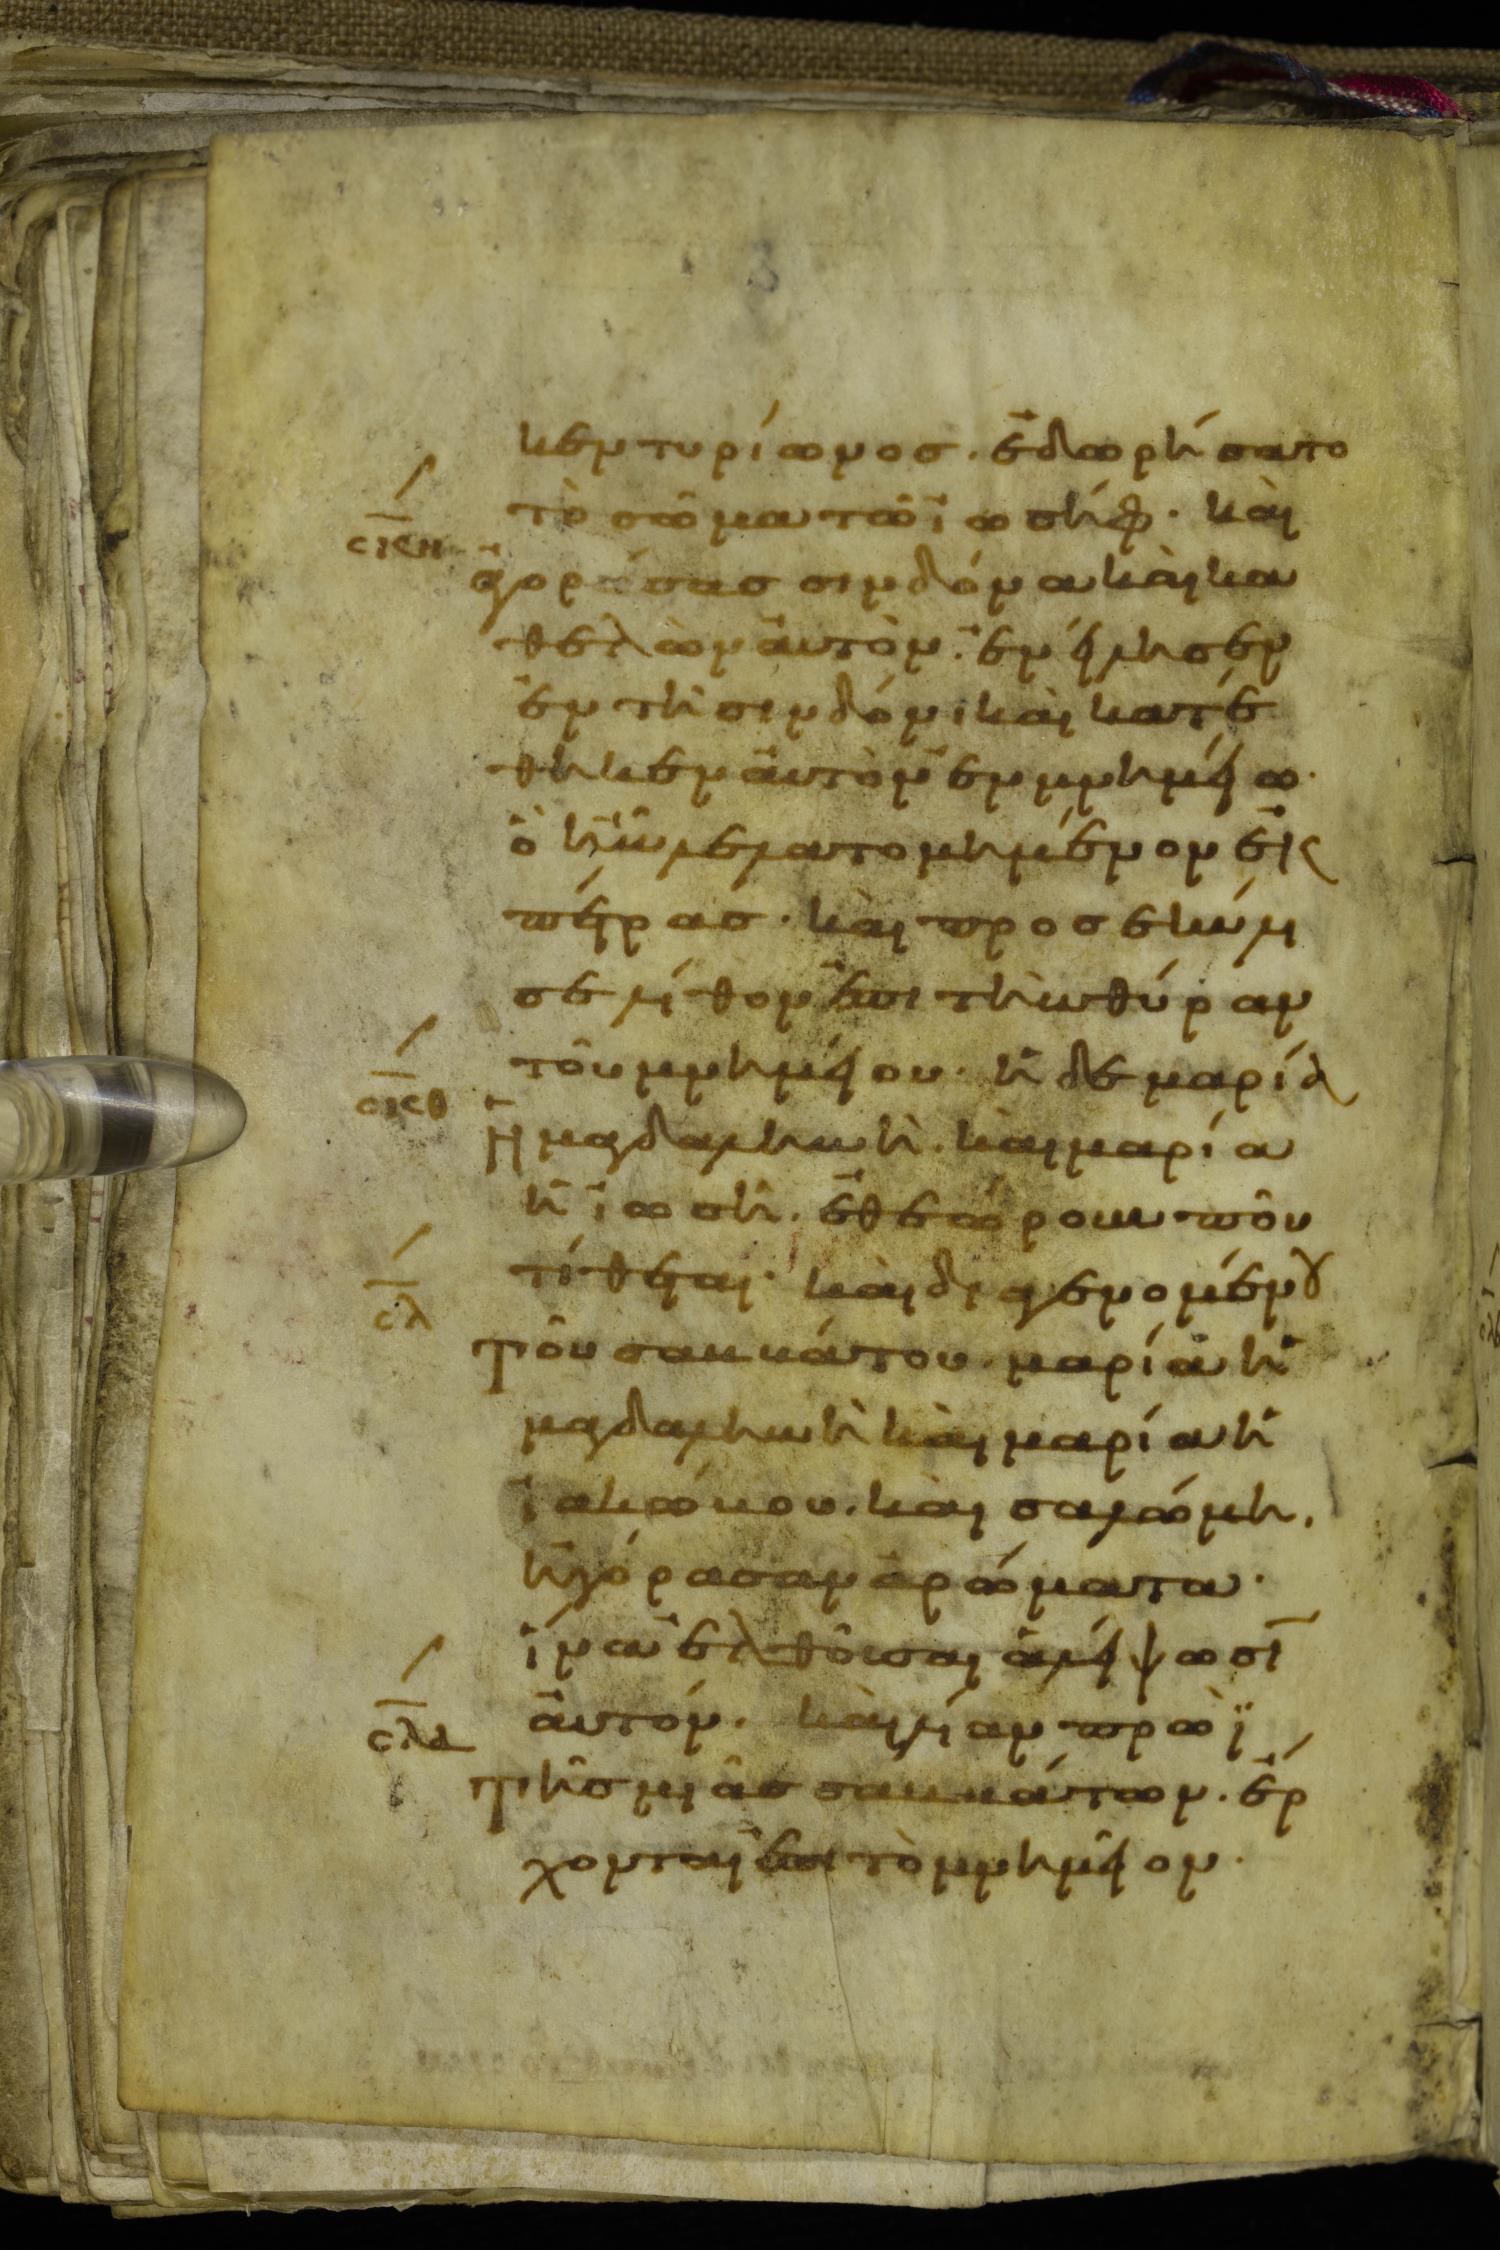 κεντυρίωνος· ἐδωρήσατο
τὸ σῶμα τῶ ἰωσήφ· καὶ
σκη
ἀγοράσας σινδόνα καὶ κα
θελὼν αὐτὸν· ἐνείλησεν
ἐν τῆ σινδόνι καὶ κατέ
θηκεν αὐτὸν ἐν μνημείω·
ὃ ἦν λελατομημένον εἰς
πέτρας· καὶ προσεκύλι
σε λίθον ἐπι τὴν θύραν
τοῦ μνημείου· ἡ δὲ μαρία
σκθ
ἡ μαγδαληνὴ· καὶ μαρία
ἡ ἰωσῆ· ἐθεώρουν ποῦ
τίθεται· καὶ διαγενομένου
σλ
τοῦ σαββάτου· μαρία ἡ
μαγδαληνὴ καὶ μαρία ἡ
ἰακώβου· καὶ σαλώμη·
ἠγόρασαν ἀρώματα·
ἵνα ἐλθοῦσαι ἀλείψωσι
αὐτόν· καὶ λίαν πρωῒ
σλα
τῆς μιᾶς σαββάτων· ἔρ
χονται ἐπι τὸ μνημεῖον·